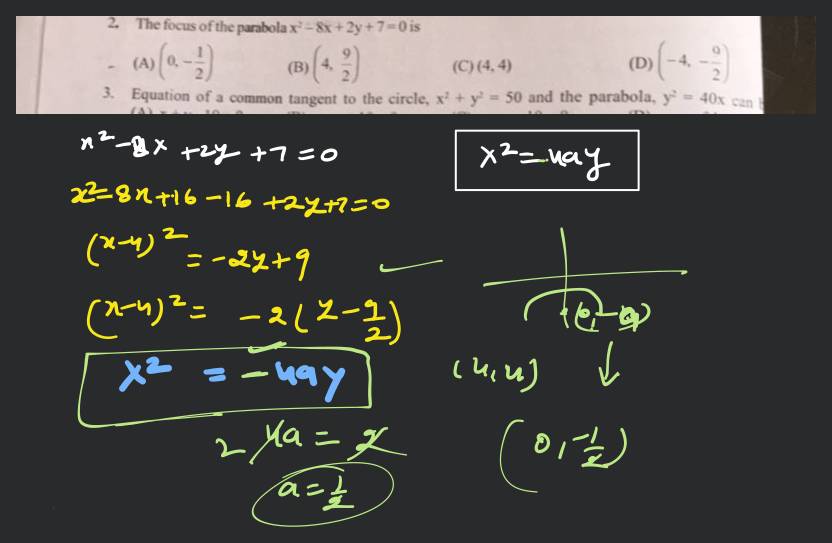 2. The focus of the parabola x² – 8x + 2y + 7 = 0 is
(A) (0, -1/2) (B) (4, 9/2) (C) (4, 4) (D) (-4, -9/2)
3. Equation of a common tangent to the circle, x² + y² = 50 and the parabola, y² = 40x can
x² - 8x + 2y + 7 = 0
X² = 4ay
x² - 8x + 16 - 16 + 2y + 7 = 0
(x-4)² = -2y + 9
(x-4)² = -2(y - 9/2)
(0, -a)
X² = -4aY
(4, 4)
2 4a = 2
(0, -1/2)
a = 1/2